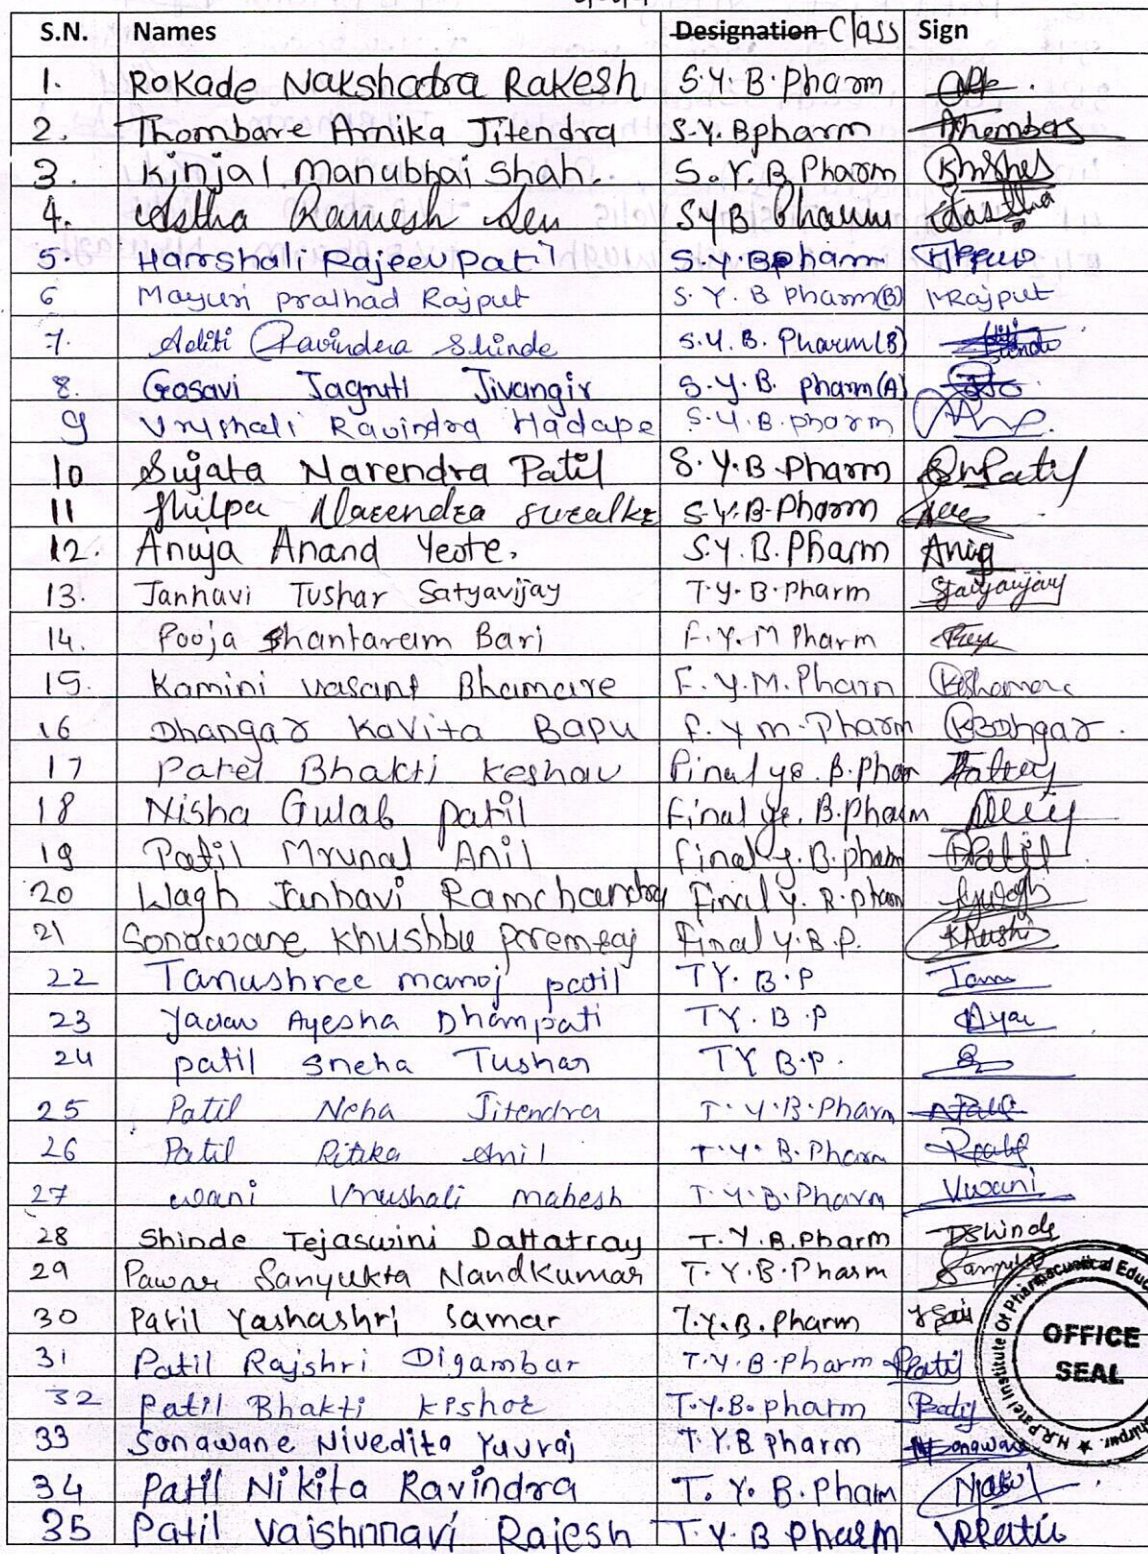 S.N. Names Designation Class Sign
1. Rokade Nakshatra Rakesh S.Y.B.Pharm
2. Thombare Arnika Jitendra S.Y. Bpharm Thombare
3. Kinjal Manubhai Shah. S.Y.B Pharm
4. Astha Ramesh Sen SYB Pharm Aastha
5. Harshali Rajeev Patil S.Y.Bpham
6 Mayuri pralhad Rajput S.Y.B Pharm(B) MRajput
7. Aditi Ravindra Shinde S.Y.B. Pharm(B)
8. Gosavi Jagruti Jivangir S.Y.B. pharm(A)
9 Vrushali Ravindra Hadape S.Y.B.pharm
10 Sujata Narendra Patil S.Y.B Pharm SnPatil
11 Shilpa Narendra S.Y.B.Pharm
12. Anuja Anand Yeote. S.Y.B.Pharm Anuja
13. Janhavi Tushar Satyavijay T.Y.B.Pharm Satyavijay
14. Pooja Shantaram Bari F.Y.M Pharm
15. Kamini vasant Bhamare F.Y.M.Pharm KBhamare
16 Dhangar Kavita Bapu F.Y M.Pharm KBDhngar.
17 Patel Bhakti Keshav Final ye. B.Phar
18 Nisha Gulab patil Final ye. B.Pharm
19 Patil Mrunal Anil Final y.B.pham Patil
20 Wagh Janhavi Ramchandra Final y. B.pham
21 Sonawane Khushbu Premraj Final Y.B.P. Khushi
22 Tanushree manoj patil TY. B.P Tanu
23 Yadav Ayesha Dhampati TY.B.P
24 patil Sneha Tushar TY B.P.
25 Patil Neha Jitendra T.Y.B.Pharm
26 Patil Ritika Anil T.Y.B.Pharm
27 wani Vrushali mahesh T.Y.B.Pharm Vwani
28 Shinde Tejaswini Dattatray T.Y.B.Pharm TDShinde
29 Pawar Sanyukta Nandkumar T.Y.B.Pharm
30 Patil Yashashri Samar T.Y.B.Pharm
31 Patil Rajshri Digambar T.Y.B.Pharm Patil
32 Patil Bhakti Kishor T.Y.B.pharm
33 Sonawane Nivedita Yuvraj T.Y.B Pharm
34 Patil Nikita Ravindra T.Y.B.Pham
35 Patil Vaishnnavi Rajesh T.Y.B Pharm VRPatil
OFFICE
SEAL
H.R.Patel Institute Of Pharmaceutical